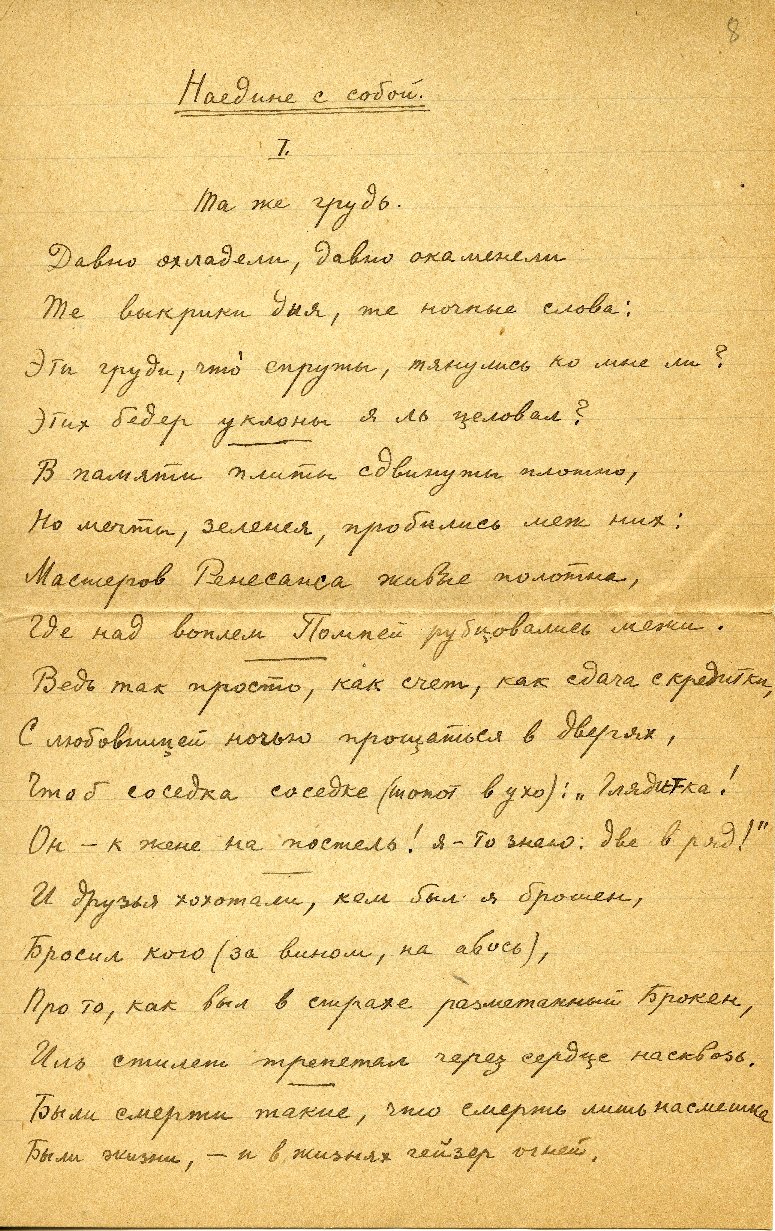 8
Наедине с собой.
I.
Та же грудь.
Давно охладели, давно окаменели
Те выкрики дня, те ночные слова:
Эти груди, что спруты, тянулись ко мне ли?
Этих бедер уклоны я ль целовал?
В памяти плиты сдвинуты плотно,
Но мечты, зеленея, пробились меж них:
Мастеров Ренесанса живые полотна,
Где над воплем Помпей рубцовались межи.
Ведь так просто, как счет, как сдача с кредитки,
С любовницей ночью прощаться в дверях,
Чтоб соседка соседке (шопот в ухо): „Гляди-тка!
Он – к жене на постель! я-то знаю: две в ряд!"
И друзья хохотали, кем был я брошен,
Бросил кого (за вином, на авось),
Про то, как выл в страхе разметанный Брокен,
Иль стилет трепетал через сердце насквозь.
Были смерти такие, что смерть лишь насмешка
Были жизни, – и в жизнях гейзер огней.